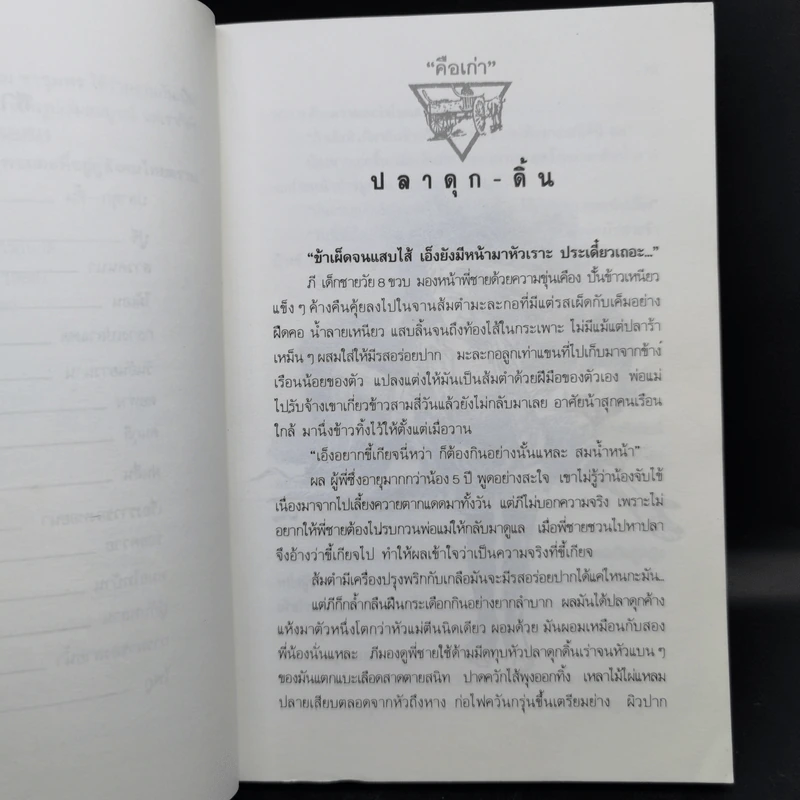 "คือเก่า"
ปลาดุก - ดิ้น
"ข้าเผ็ดจนแสบไส้ เอ็งยังมีหน้ามาหัวเราะ ประเดี๋ยวเถอะ..."
ภี เด็กชายวัย 8 ขวบ มองหน้าพี่ชายด้วยความขุ่นเคือง ปั้นข้าวเหนียว
แข็ง ๆ ค้างคืนคุ้ยลงไปในจานส้มตำมะละกอที่มีแต่รสเผ็ดกับเค็มอย่าง
ฝืดคอ น้ำลายเหนียว แสบลิ้นจนถึงท้องไส้ในกระเพาะ ไม่มีแม้แต่ปลาร้า
เหม็น ๆ ผสมใส่ให้มีรสอร่อยปาก มะละกอลูกเท่าแขนที่ไปเก็บมาจากข้าง
เรือนน้อยของตัว แปลงแต่งให้มันเป็นส้มตำด้วยฝีมือของตัวเอง พ่อแม่
ไปรับจ้างเขาเกี่ยวข้าวสามสี่วันแล้วยังไม่กลับมาเลย อาศัยน้าสุกคนเรือน
ใกล้ มานึ่งข้าวทิ้งไว้ให้ตั้งแต่เมื่อวาน
"เอ็งอยากขี้เกียจนี่หว่า ก็ต้องกินอย่างนั้นแหละ สมน้ำหน้า"
ผล ผู้พี่ซึ่งอายุมากกว่าน้อง 5 ปี พูดอย่างสะใจ เขาไม่รู้ว่าน้องจับไข้
เนื่องมาจากไปเลี้ยงควายตากแดดมาทั้งวัน แต่ภีไม่บอกความจริง เพราะไม่
อยากให้พี่ชายต้องไปรบกวนพ่อแม่ให้กลับมาดูแล เมื่อพี่ชายชวนไปหาปลา
จึงอ้างว่าขี้เกียจไป ทำให้ผลเข้าใจว่าเป็นความจริงที่ขี้เกียจ
ส้มตำมีเครื่องปรุงพริกกับเกลือมันจะมีรสอร่อยปากได้แค่ไหนกะมัน..
แต่ภีก็กล้ำกลืนฝืนกระเดือกกินอย่างยากลำบาก ผลมันได้ปลาดุกค้าง
แห้งมาตัวหนึ่งโตกว่าหัวแม่ตีนนิดเดียว ผอมด้วย มันผอมเหมือนกับสอง
พี่น้องนั่นแหละ ภีมองดูพี่ชายใช้ด้ามมีดทุบหัวปลาดุกดิ้นเร่าจนหัวแบน ๆ
ของมันแตกแบะเลือดสาดตายสนิท ปาดควักไส้พุงออกทิ้ง เหลาไม้ไผ่แหลม
ปลายเสียบตลอดจากหัวถึงหาง ก่อไฟควันกรุ่นขึ้นเตรียมย่าง ผิวปาก